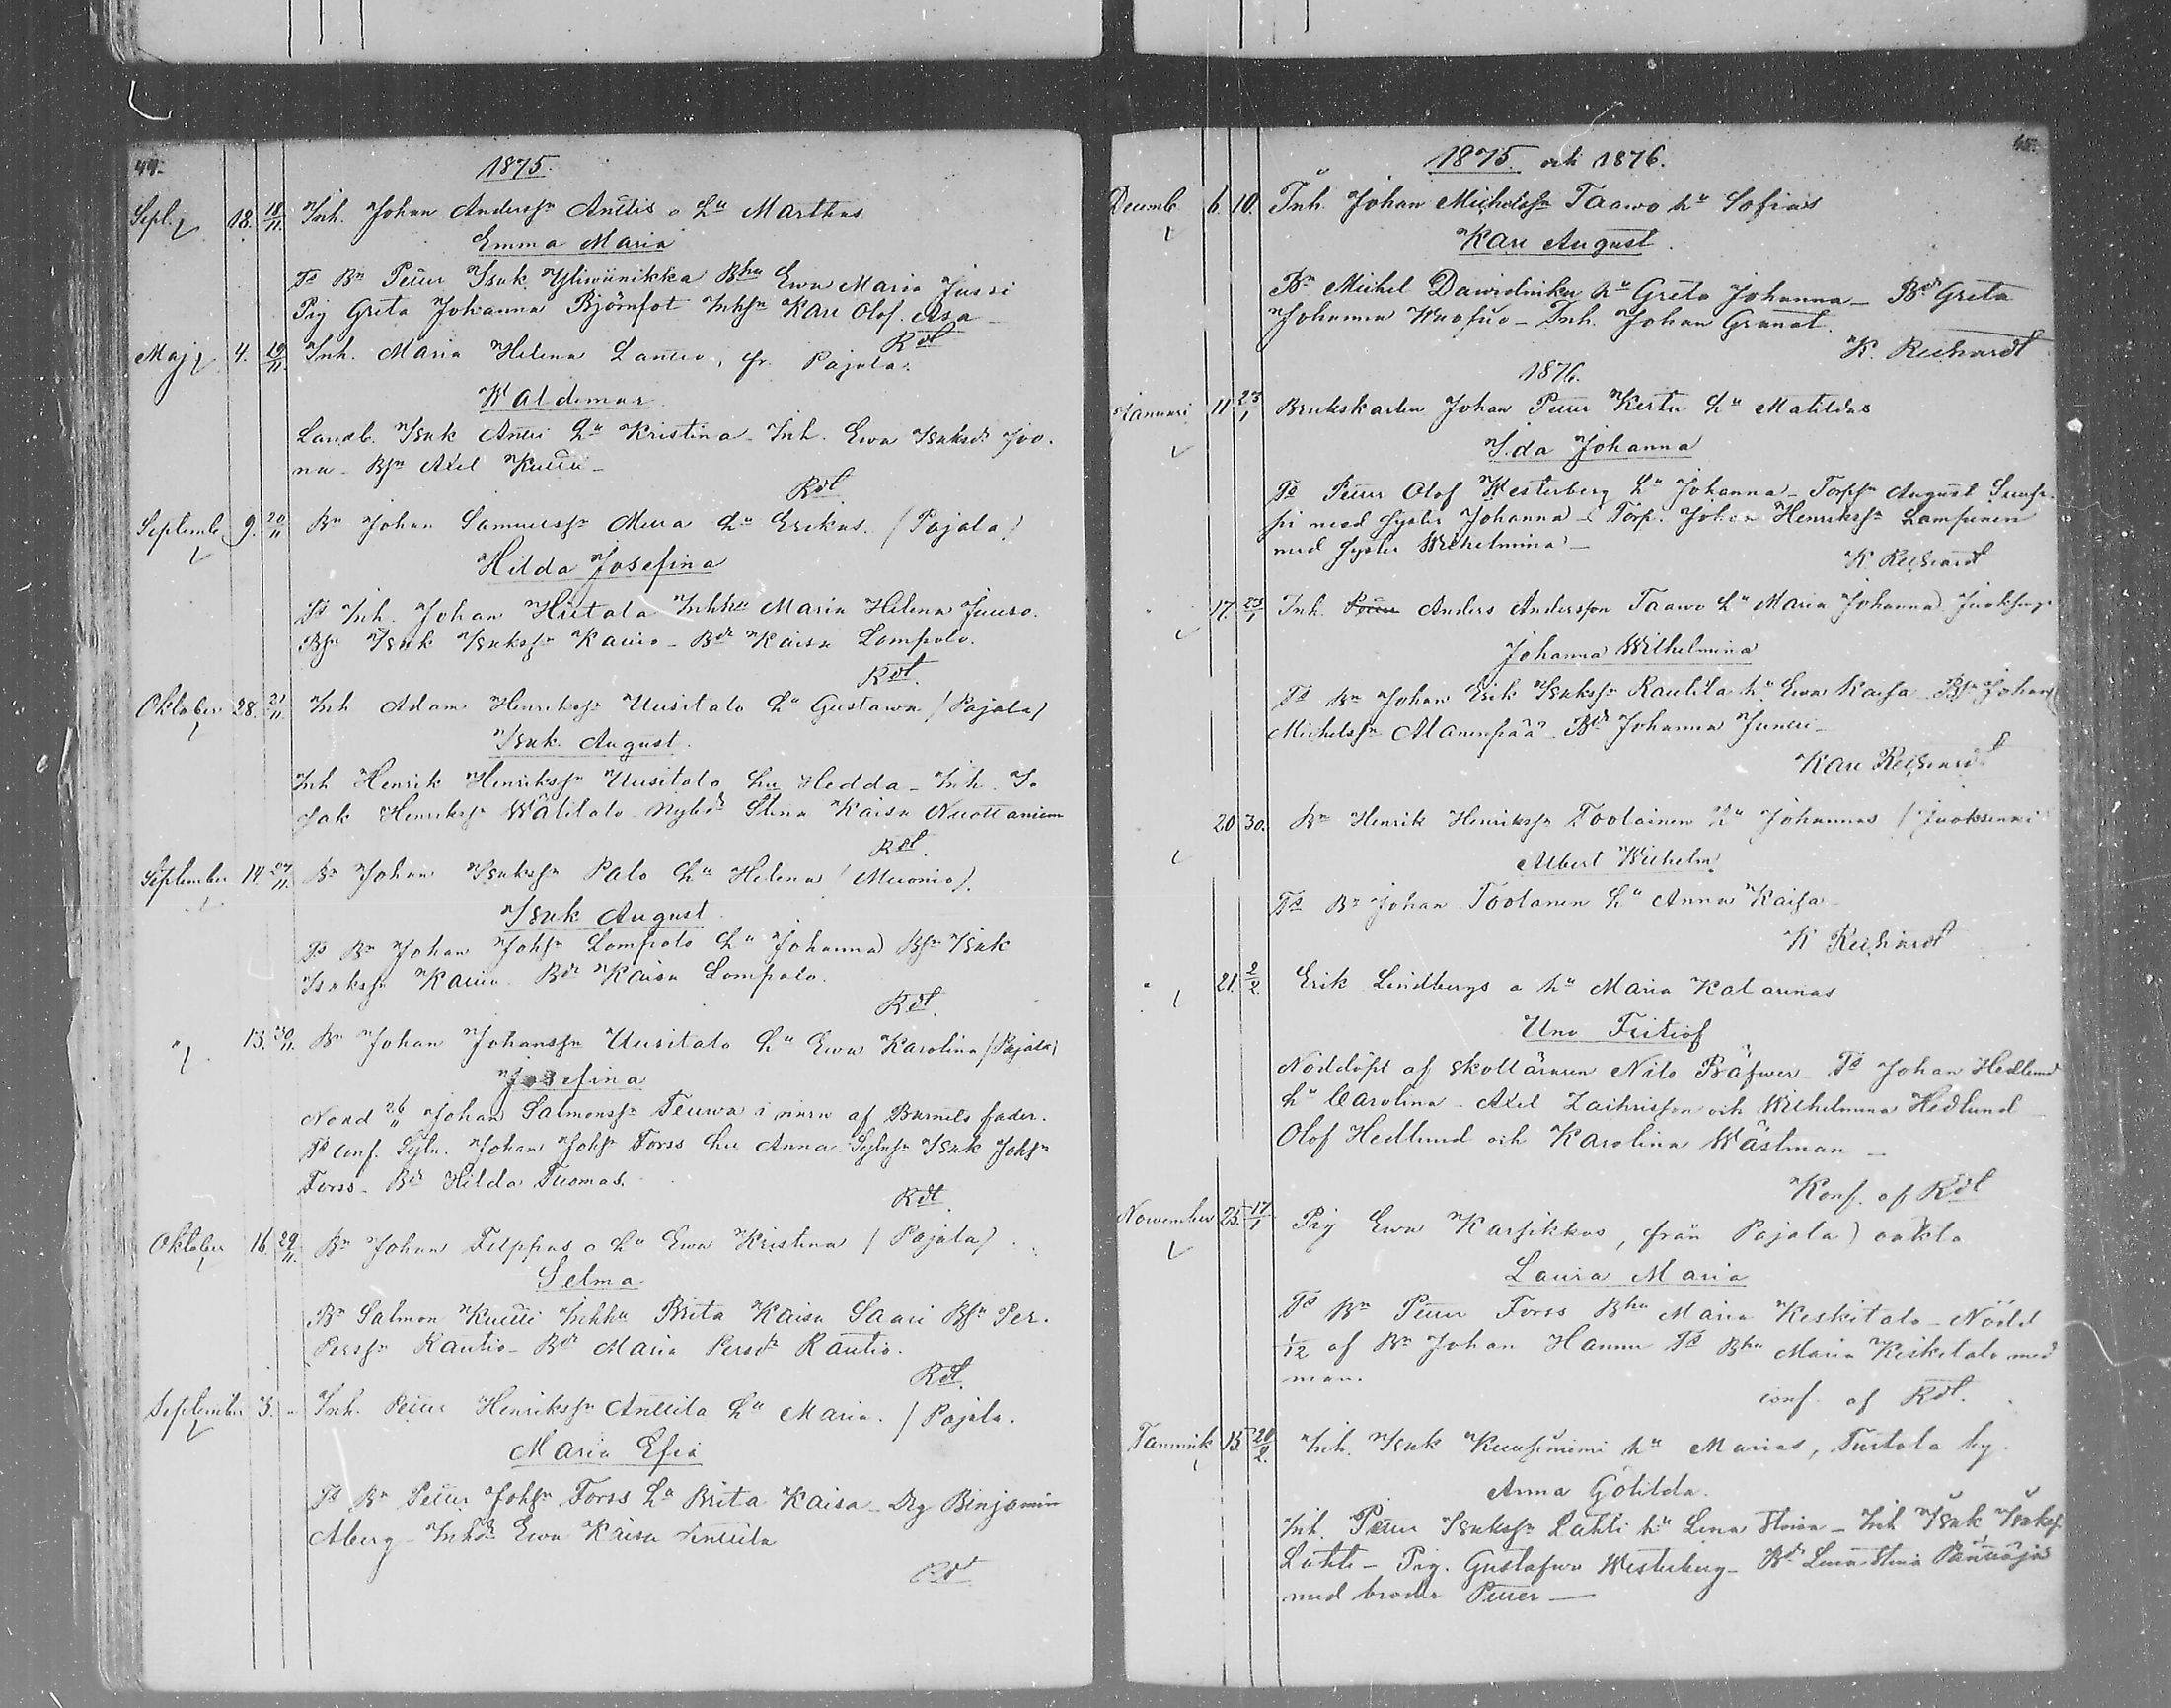 44.
1875.
Sept. 18. 18/11. Inh. Johan Anderssn Anttis o hu Marthas
Emma Maria
Ts Bn Petter Isak Yliwainikka Bhu Ewa Maria Jussi
Pig Greta Johanna Björnfot Inhsn Karl Olof Asa
Rdt
Maj 4. 19/11. Inh. Maria Helena Lantto, fr. Pajala.
Waldemar
Landb. Isak Antti hu Kristina - Inh. Ewa Isaksdr Joo.
na - Bsn Axel Kutti -
Rdt
Septemb. 9. 20/11 Bn Johan Samuelssn Mella hu Erikas. (Pajala)
Hilda Josefina
Ts Inh. Johan Hietala Inhhu Maria Helena Juuso.
Bsn Isak Isakssn Kauio - Bdr Kaisa Lompolo.
Rdt.
Oktober 28. 21/11. Inh Adam Henrikssn Uusitalo hu Gustawa (Pajala)
Isak August.
Inh Henrik Henrikssn Uusitalo hu Hedda - Inh. I.
sak Henrikssn Wälitalo - Nybdr Stina Kaisa Nuottaniem
Rdt.
September 14. 27/11. Bn Johan Isakssn Palo hu Helena (Muonio).
Isak August
Ts Bn Johan Johsn Lompolo hu Johanna) Bsn Isak
Isakssn Kauio. Bdr Kaisa Lompolo.
Rdt.
" 13. 30/11. Bn Johan Johanssn Uusitalo hu Ewa Karolina (Pajala)
Josefina
Nöad 26/" Johan Salmonssn Teurwa i närw af Barnets fader.
Ts conf. Sejln. Johan Johsn Forss hu Anna. Sejlnsn Isak Johsn
Forss - Bdr Hilda Tuomas.
Rdt.
Oktober 16. 29/11. Bn Johan Filppas o hu Ewa Kristina (Pajala).
Selma
Bn Salmon Kutti Inhhu Brita Kaisa Saari Bsn Per.
Perssn Rautio - Bdr Maria Persdr Rautio.
Rdt.
September 3. " Inh. Petter Henrikssn Anttila hu Maria. (Pajala.
Maria Efia
Ts Bn Petter Johsn Forss hu Brita Kaisa - Drg Binjamin
Åberg - Inhdr Ewa Kaisa Anttila
Rdt
45.
1875. och 1876.
Decemb. 6. 10. Inh. Johan Michelssn Taawo hu Sofias
Karl August.
Bn Michel Dawidinku hu Greta Johanna - Bdr Greta
Johanna Wuofuo - Inh. Johan Granat.
K. Reichardt
1876.
Januari 11 23/1 Brukskarlen Johan Petter Kertu hu Matildas
Ida Johanna
Ts Petter Olof Westerberg hu Johanna - Torpsn August
med syster Johanna - Torp. Johan Henrikssn Lampinen
med syster Wilhelmina -
K. Reichardt
" 17. 23/1 Inh. Anders Andersson Taawo hu Maria Johanna) Juoksengi
Johanna Wilhelmina
Ts Bn Johan Erik Isakssn Rautila hu Ewa Kaisa - Bsn Johan
Michelssn Alanenpää - Bdr Johanna Juntti -
Karl Reichardt
20 30. Bn Henrik Henrikssn Toolainen hu Johannas (Juoksenni
Albert Wilhelm.
Ts Bn Johan Toolanen hu Anna Kaisa -
K Reichardt
" 21. 2/2. Erik Lindbergs o hu Maria Katarinas
Uno Fritiof
Nöddöpt af skolläraren Nils Bäfwer - Ts Johan Hedlund
hu Carolina - Axel Zachrisson och Wilhelmina Hedlund
Olof Hedlund och Karolina Wästman -
Konf. af Rdt
November 25. 17/1 Pig Ewa Karsikkos, från Pajala) oäkta
Laura Maria
Ts Bn Petter Forss Bhu Maria Keskitalo - Nödd
1/12 af Bn Johan Hannu Ts Bhu Maria Keskitalo med
man.
conf. af Rdt.
Januari 15. 20/2. Inh. Isak Kuusiniemi hu Marias, Turtola by.
Anna Gotilda.
Inh. Petter Isakssn Lahti hu Lena Stina - Inh Isak Isakss
Lahti - Pig. Gustafwa Westerberg - Bdr Lena Stina
med broder Petter -